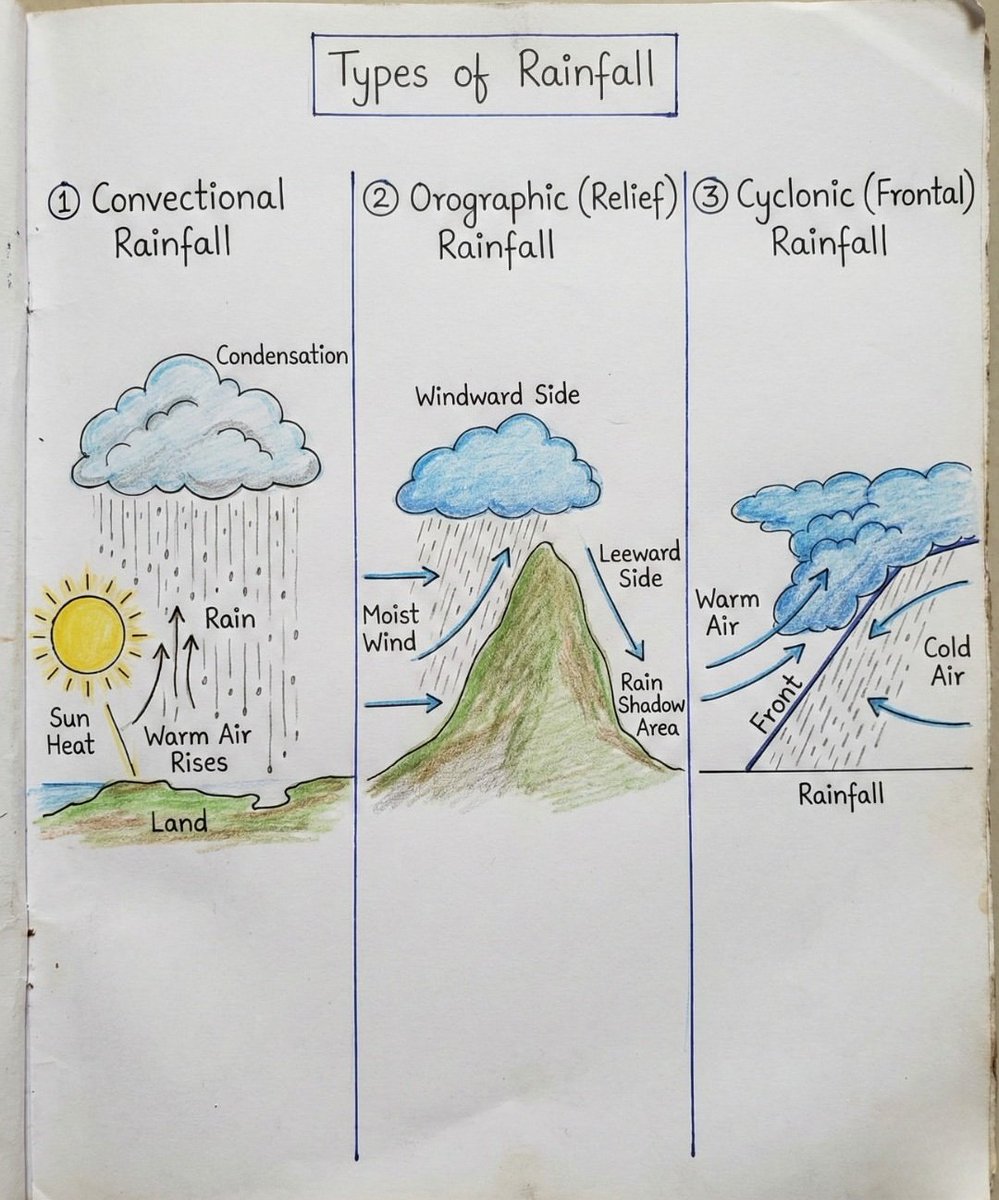 Types of Rainfall
① Convectional
Rainfall
Condensation
Rain
Sun
Heat
Warm Air
Rises
Land
② Orographic (Relief)
Rainfall
Windward Side
Leeward
Side
Moist
Wind
Rain
Shadow
Area
③ Cyclonic (Frontal)
Rainfall
Warm
Air
Cold
Air
Front
Rainfall